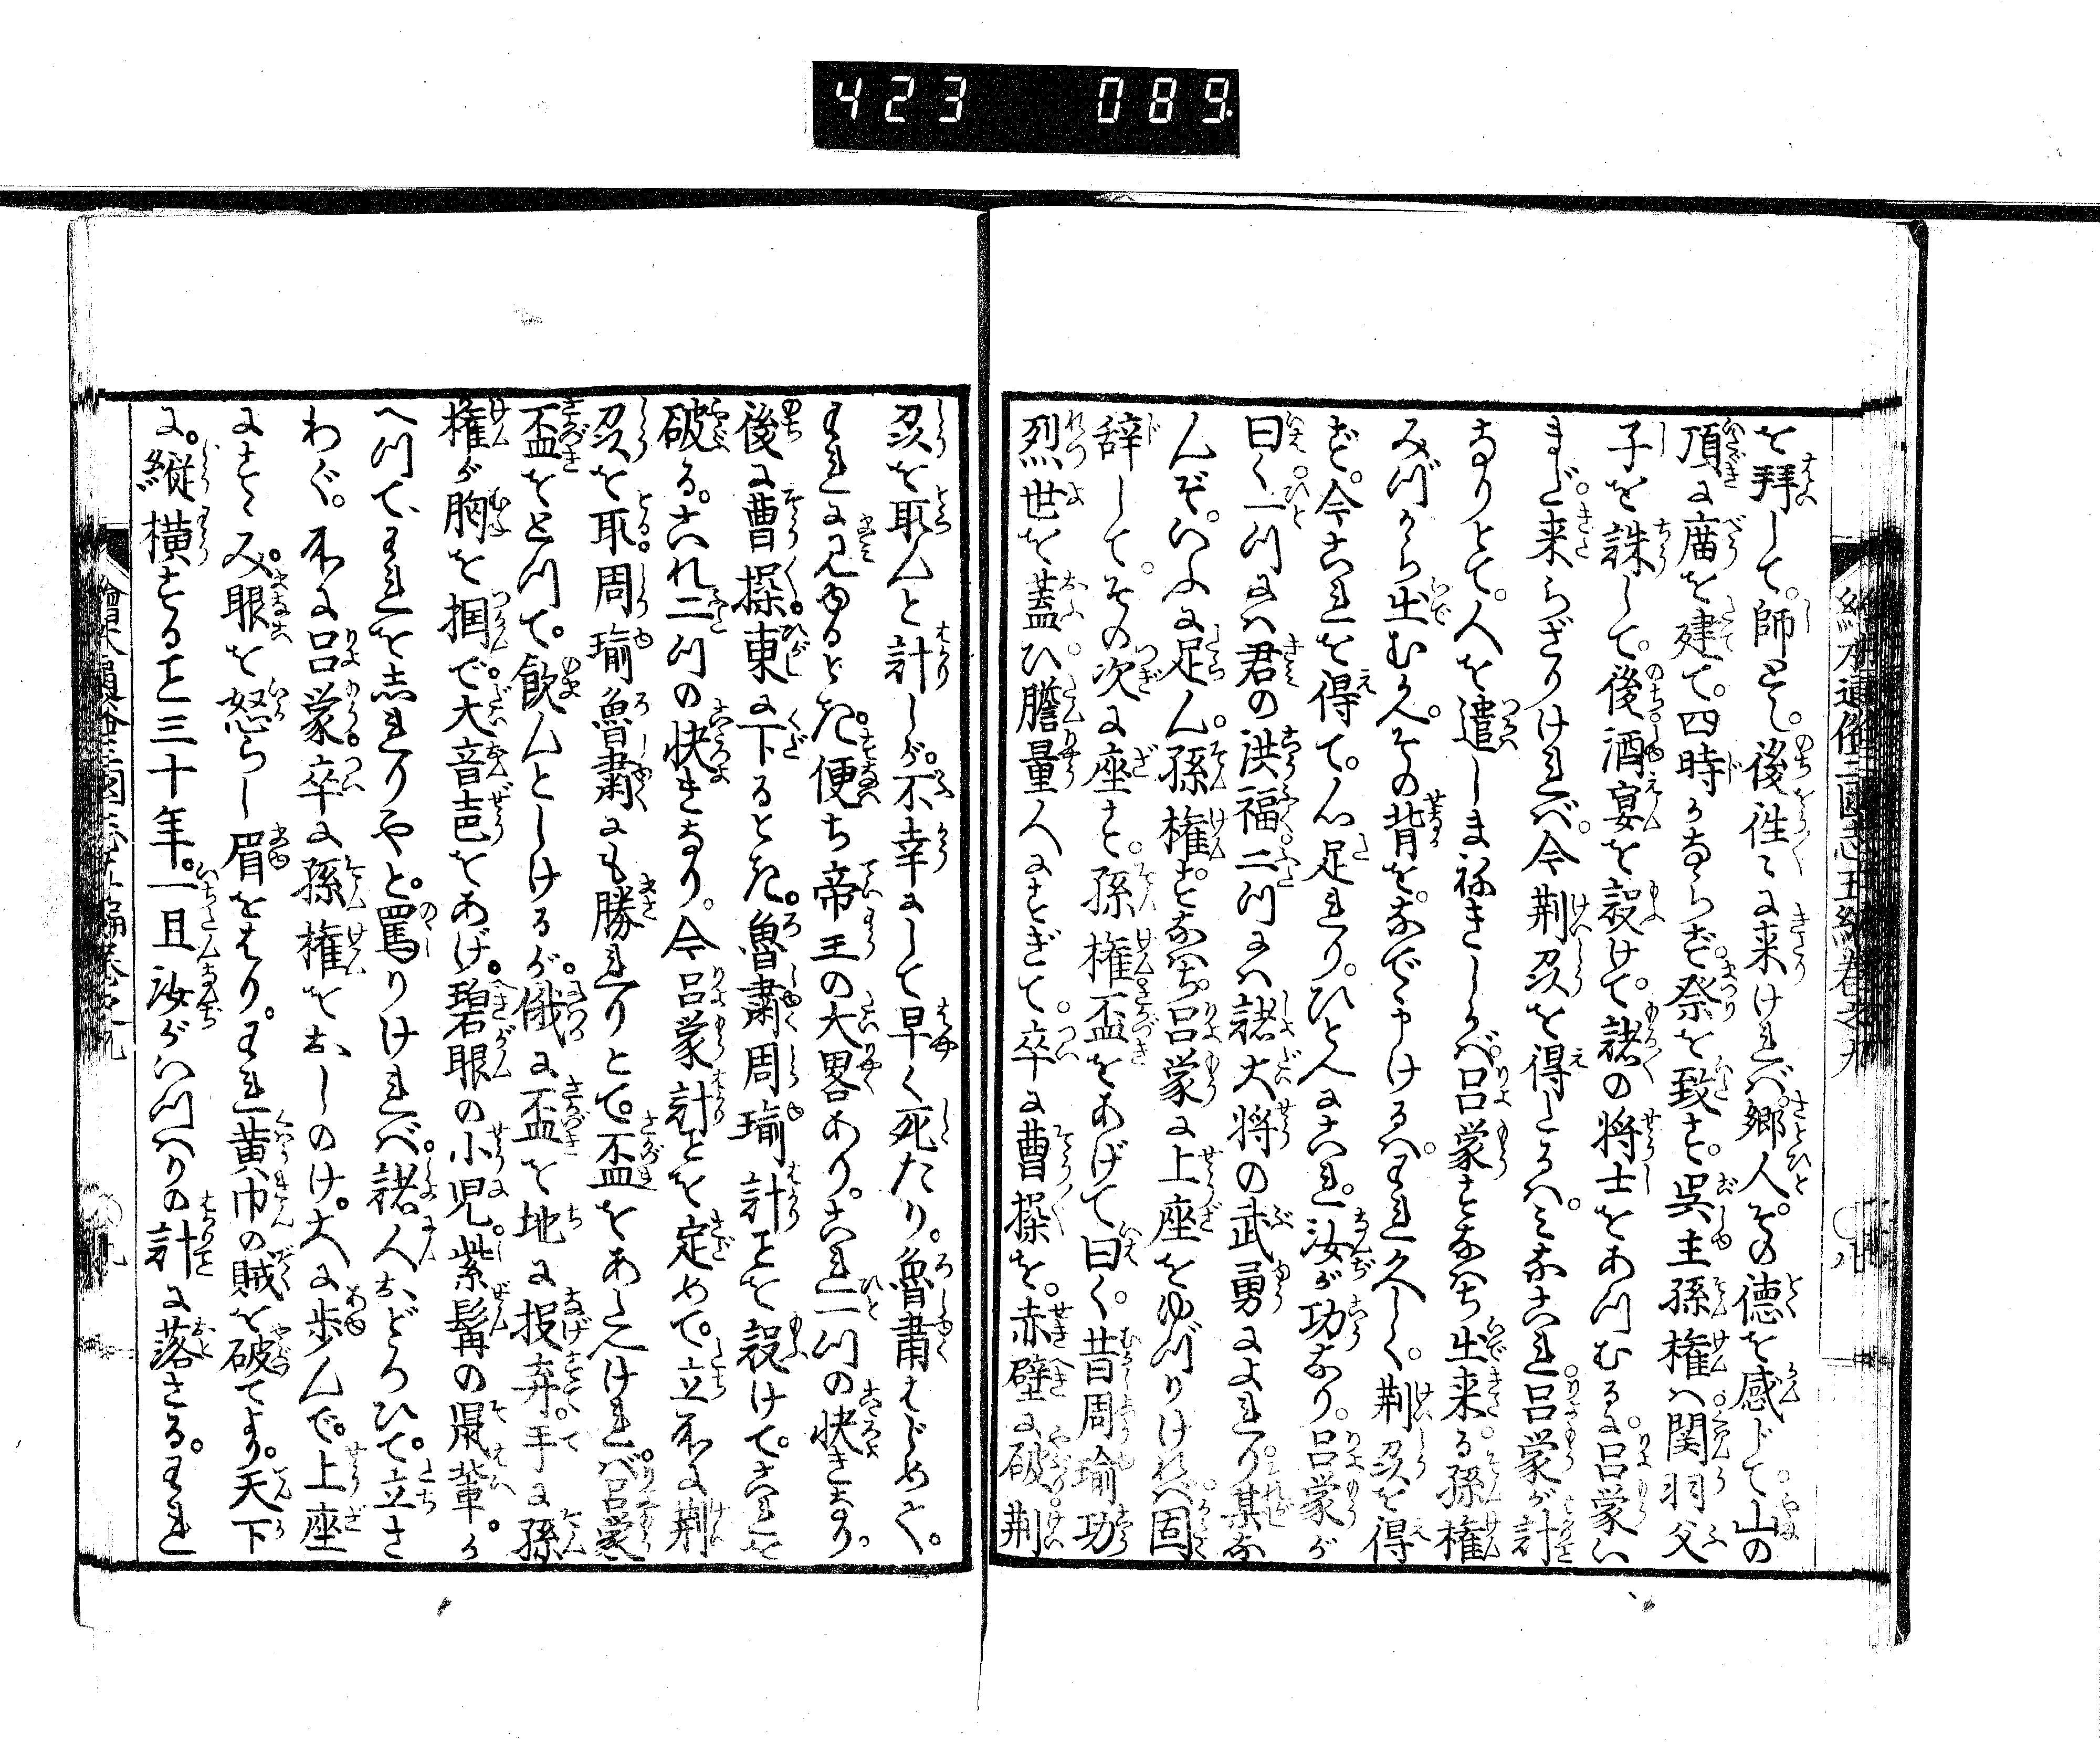 423 089
を拝して。師とし。後往〻に来けれバ。郷人。その徳を感じて。山の
頂に廟を建て。四時かならず。祭を致す。呉主孫権ハ関羽父
子を誅して。後酒宴を設けて。諸の将士をあつむるに。呂蒙い
まだ。来らざりけれバ。今荊刕を得しハ。みなこれ。呂蒙が計
なりとて。人を遣しまねきしかバ。呂蒙すなわち出来る。孫権
みづから出むかへ。その背を。なでゝ申けるハ。われ久しく。荊刕を得
ず。今これを得て。心足れり。ひとへにこれ。汝が功なり。呂蒙が
曰く。一ツにハ君の洪福。二ツにハ諸大将の武勇によれり。某な
んぞ。いふに足ん。孫権。すなわち。呂蒙に上座をゆづりけれバ。固
辞して。その次に座す。孫権盃をあげて曰く。昔周瑜功
烈世を蓋ひ。膽量人にすぎて。卒に曹操を。赤壁に破。荊
刕を取んと計しが。不幸にして早く死たり。魯粛はじめて。
われに見ゆるとき。便ち帝王の大畧あり。これ一ツの快きなり。
後に曹操。東に下るとき。魯粛周瑜計ことを設けて。これを
破る。これ二ツの快きなり。今呂蒙計ことを定めて。立尓に荊
刕を取。周瑜魯粛にも勝れりとて。盃をあたへけれバ。呂蒙
盃をとつて。飲んとしけるが。俄に盃を地に投弃。手に孫
権が胸を掴で。大音声をあげ。碧眼の小児。紫髯の鼠輩。か
へつて、われを志れりやと。罵りけれバ。諸人おどろひて。立さ
わぐ。尓に呂蒙。卒に孫権をおしのけ。大に歩んで。上座
にすゝみ。眼を怒らし眉をはり。われ黄巾の賊を破てより。天下
に。縦横すること三十年。一旦汝がいつハりの計に落さる。われ